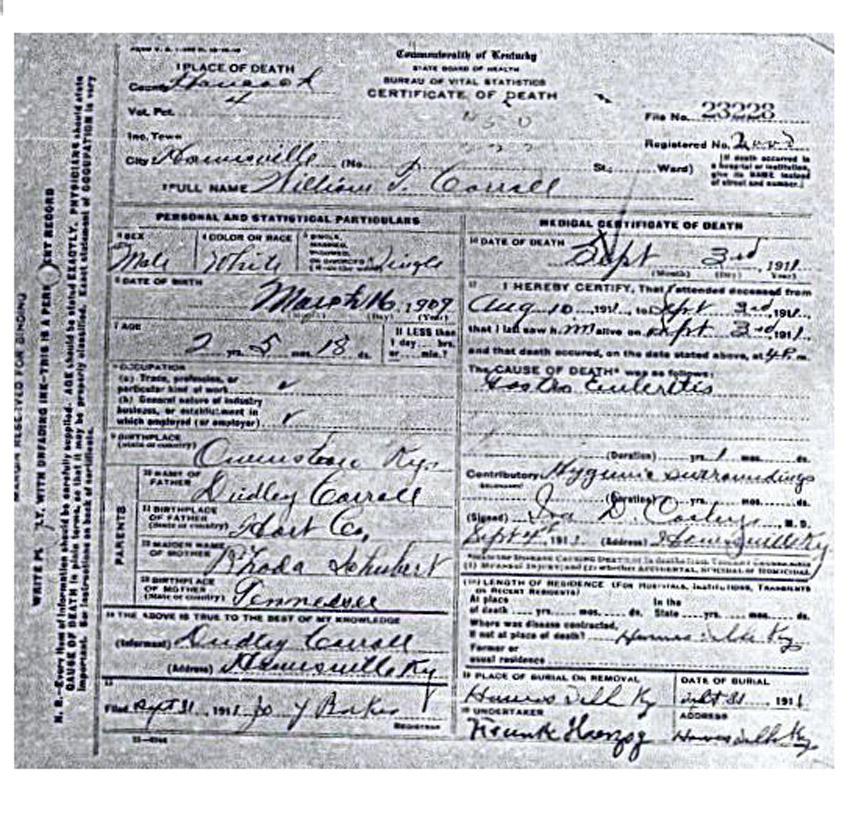 Commonwealth of Kentucky
STATE BOARD OF HEALTH
BUREAU OF VITAL STATISTICS
CERTIFICATE OF DEATH
1 PLACE OF DEATH
County Hancock
Vot. Pct. 4
File No. 23228
Inc. Town
Registered No.
City Hawesville (No. St.; Ward)
(If death occurred in a hospital or institution, give its NAME instead of street and number.)
2 FULL NAME William T. Carroll
PERSONAL AND STATISTICAL PARTICULARS
3 SEX Male
4 COLOR OR RACE White
5 SINGLE, MARRIED, WIDOWED, OR DIVORCED Single
6 DATE OF BIRTH March 16, 1909
(Month) (Day) (Year)
7 AGE 2 yrs. 5 mos. 18 ds.
If LESS than 1 day ... hrs. or ... min.?
8 OCCUPATION
(a) Trade, profession, or particular kind of work
(b) General nature of industry business, or establishment in which employed (or employer)
9 BIRTHPLACE
(State or country) Ky.
PARENTS
10 NAME OF FATHER Dudley Carroll
11 BIRTHPLACE OF FATHER
(State or country) Hart Co,
12 MAIDEN NAME OF MOTHER Rhoda Schubert
13 BIRTHPLACE OF MOTHER
(State or country) Tennessee
14 THE ABOVE IS TRUE TO THE BEST OF MY KNOWLEDGE
(Informant) Dudley Carroll
(Address) Hawesville Ky
15
Filed Sept 1911
REGISTRAR
MEDICAL CERTIFICATE OF DEATH
16 DATE OF DEATH Sept 3rd, 1911
(Month) (Day) (Year)
17 I HEREBY CERTIFY, That I attended deceased from
Aug 10, 1911, to Sept 3rd, 1911,
that I last saw h m alive on Sept 3rd, 1911,
and that death occured, on the date stated above, at 4 P. m.
The CAUSE OF DEATH* was as follows:
Gastro Enteritis
(Duration) yrs. 1 mos. ds.
Contributory Hygienic surroundings
(Duration) yrs. mos. ds.
(Signed) Ira D. M. D.
Sept 4, 1911 (Address) Hawesville Ky
(18) LENGTH OF RESIDENCE (FOR HOSPITALS, INSTITUTIONS, TRANSIENTS OR RECENT RESIDENTS)
At place of death yrs. mos. ds. In the State yrs. mos. ds.
Where was disease contracted,
If not at place of death? Hawesville Ky
Former or usual residence
19 PLACE OF BURIAL OR REMOVAL Hawesville Ky
DATE OF BURIAL 1911
20 UNDERTAKER Frank Herzog
ADDRESS Hawesville Ky
MARGIN RESERVED FOR BINDING
WRITE PLAINLY, WITH UNFADING INK—THIS IS A PERMANENT RECORD
N. B.—Every item of information should be carefully supplied. AGE should be stated EXACTLY. PHYSICIANS should state
CAUSE OF DEATH in plain terms, so that it may be properly classified. Exact statement of OCCUPATION is very
important. See instructions on back of certificate.